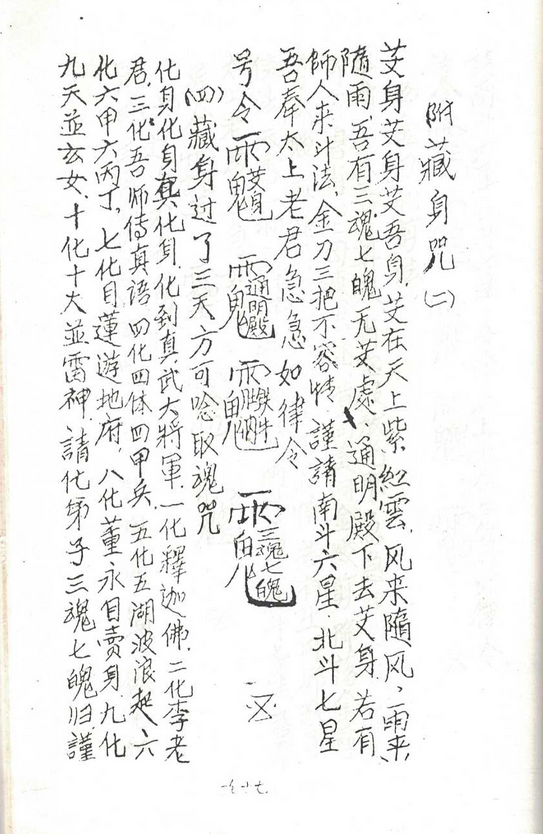 附藏身咒(二)
艾身艾身艾吾身,艾在天上紫红雲,风来隨风,雨来
隨雨,吾有三魂七魄无艾處,通明殿下去艾身,若有
師人来斗法,金刀三把不容情,謹請南斗六星,北斗七星
吾奉太上老君急急如律令
号令 艾身 通明殿 三魂七魄
(四)藏身过了三天方可唸取魂咒
化身化身真化身,化到真武大將軍,一化釋迦佛,二化李老
君,三化吾师傅真語,四化四体四甲兵,五化五湖波浪起,六
化六甲六丙丁,七化目蓮游地府,八化董永自賣身,九化
九天並玄女,十化十大並雷神,請化弟子三魂七魄归謹